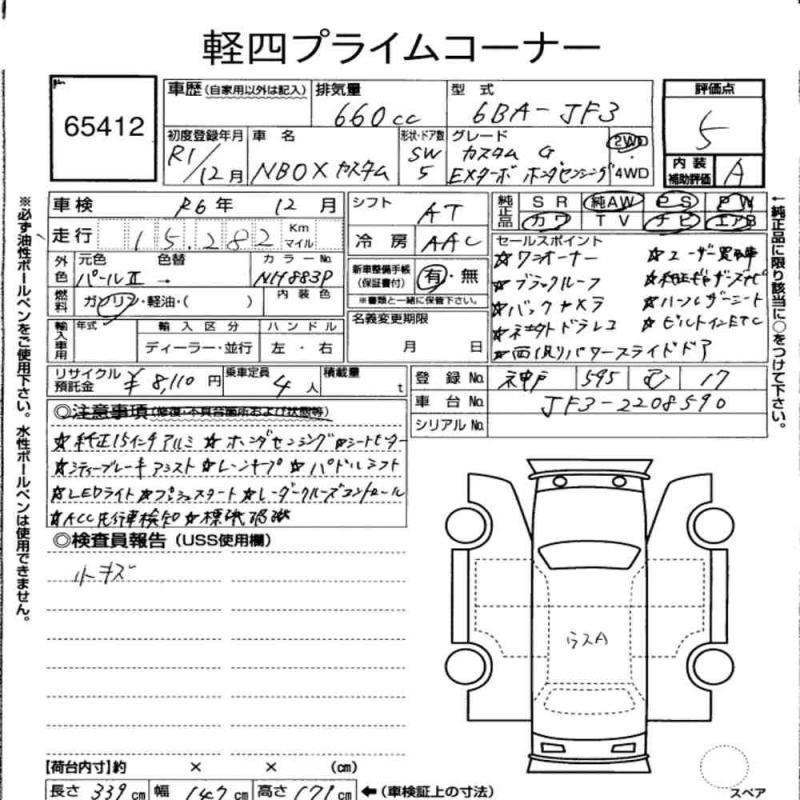 軽四プライムコーナー
65412
車歴 (自家用以外は記入) 排気量 型式 評価点
660cc 6BA-JF3 5
初度登録年月 車名 形状・ドア数 グレード 2WD
R1/12月 NBOXカスタム SW 5 カスタム G EXターボ ホンダセンシング 4WD
内装補助評価 A
車検 R6年 12月 シフト AT
純正品 SR 純AW PS PW
カワ TV ナビ エアB
走行 15,282 Km マイル 冷房 AAC
外色 元色 色替 カラーNo.
パールⅡ → NH883P
新車整備手帳 (保証書付) 有・無
※書類と一緒に保管下さい。
燃料 ガソリン・軽油・( ) 内装色
輸入車用 年式 輸入区分 ハンドル
ディーラー・並行 左・右
名義変更期限
月 日
セールスポイント
☆ワンオーナー ☆ユーザー買取車
☆ブラックルーフ ☆純正ギャザズナビ
☆バックカメラ ☆ハンレザーシート
☆前後ドラレコ ☆ビルトインETC
☆両側パワースライドドア
リサイクル預託金 ¥8,110円 乗車定員 4人 積載量 t
登録No. 神戸 595 む 17
車台No. JF3-2208590
シリアルNo.
◎注意事項(修復・不具合箇所および状態等)
☆純正15インチアルミ ☆ホンダセンシング ☆シートヒーター
☆シティーブレーキアシスト ☆レーンキープ ☆パドルシフト
☆LEDライト ☆プッシュスタート ☆レーダークルーズコントロール
☆ACC先行車検知 ☆標識認識
◎検査員報告 (USS使用欄)
小キズ
ラスA
【荷台内寸】約 × × (cm)
長さ 339cm 幅 147cm 高さ 171cm ←(車検証上の寸法)
スペア
※必ず油性ボールペンをご使用下さい。水性ボールペンは使用できません。
←純正品に限り該当に○をつけて下さい。